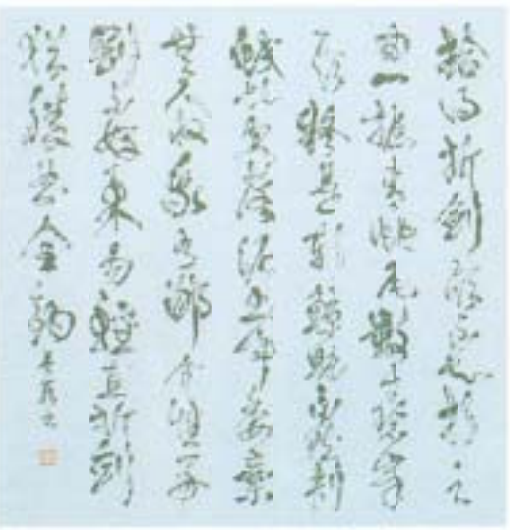 拾得折劍頭不知折之
由一握青蛇尾數寸碧峰
頭疑是斬鯨鯢不然刺
蛟虬缺落泥土中委棄
無人收我有鄙介性好
剛不好柔勿輕直折劍
猶勝曲全鉤